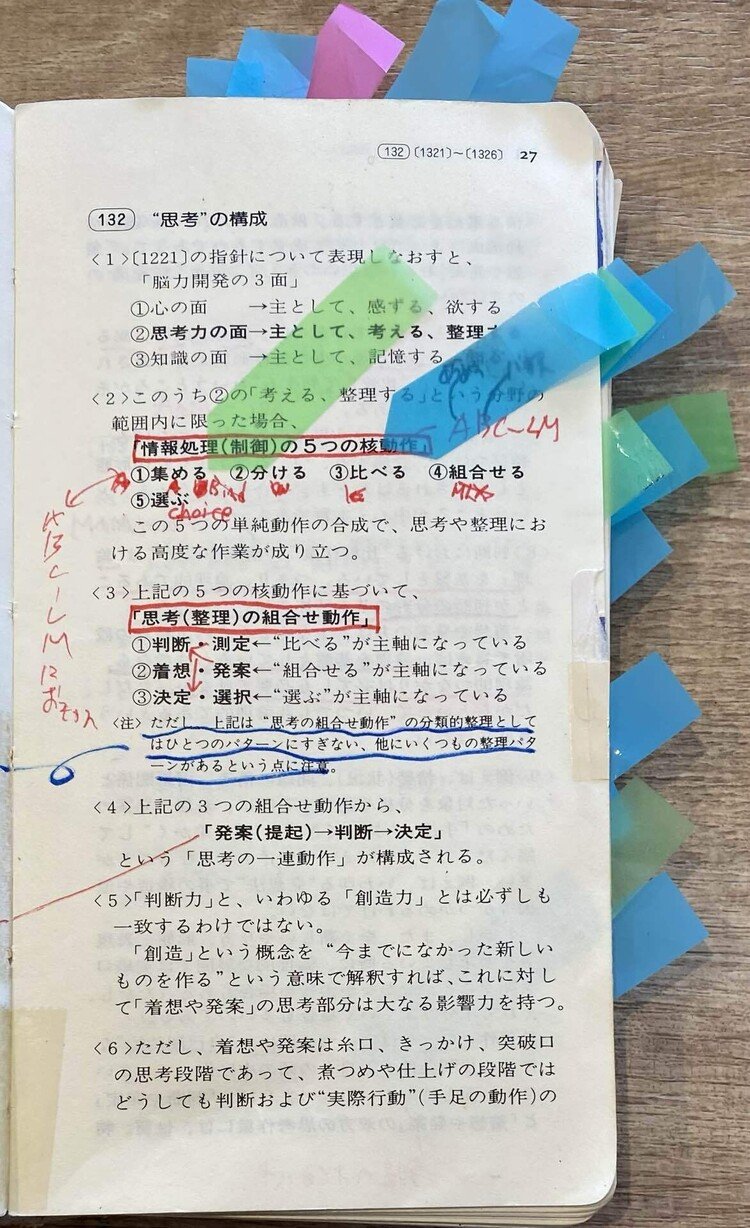 132 〔1321〕〜〔1326〕 27
132 “思考”の構成
〈1〉〔1221〕の指針について表現しなおすと、
「脳力開発の3面」
①心の面 →主として、感ずる、欲する
②思考力の面→主として、考える、整理
③知識の面 →主として、記憶する
〈2〉このうち②の「考える、整理する」という分野の
範囲内に限った場合、
ABC〜LM
「情報処理(制御)の5つの核動作」
①集める ②分ける ③比べる ④組合せる
MIX
⑤選ぶ
choice
この5つの単純動作の合成で、思考や整理にお
ける高度な作業が成り立つ。
A
B
C
〜
L
M
〈3〉上記の5つの核動作に基づいて、
「思考(整理)の組合せ動作」
①判断・測定←“比べる”が主軸になっている
②着想・発案←“組合せる”が主軸になっている
③決定・選択←“選ぶ”が主軸になっている
〈注〉ただし、上記は“思考の組合せ動作”の分類的整理として
はひとつのパターンにすぎない、他にいくつもの整理パタ
ーンがあるという点に注意。
〈4〉上記の3つの組合せ動作から、
「発案(提起)→判断→決定」
という「思考の一連動作」が構成される。
〈5〉「判断力」と、いわゆる「創造力」とは必ずしも
一致するわけではない。
「創造」という概念を“今までになかった新しい
ものを作る”という意味で解釈すれば、これに対し
て「着想や発案」の思考部分は大なる影響力を持つ。
〈6〉ただし、着想や発案は糸口、きっかけ、突破口
の思考段階であって、煮つめや仕上げの段階では
どうしても判断および“実際行動”(手足の動作)の